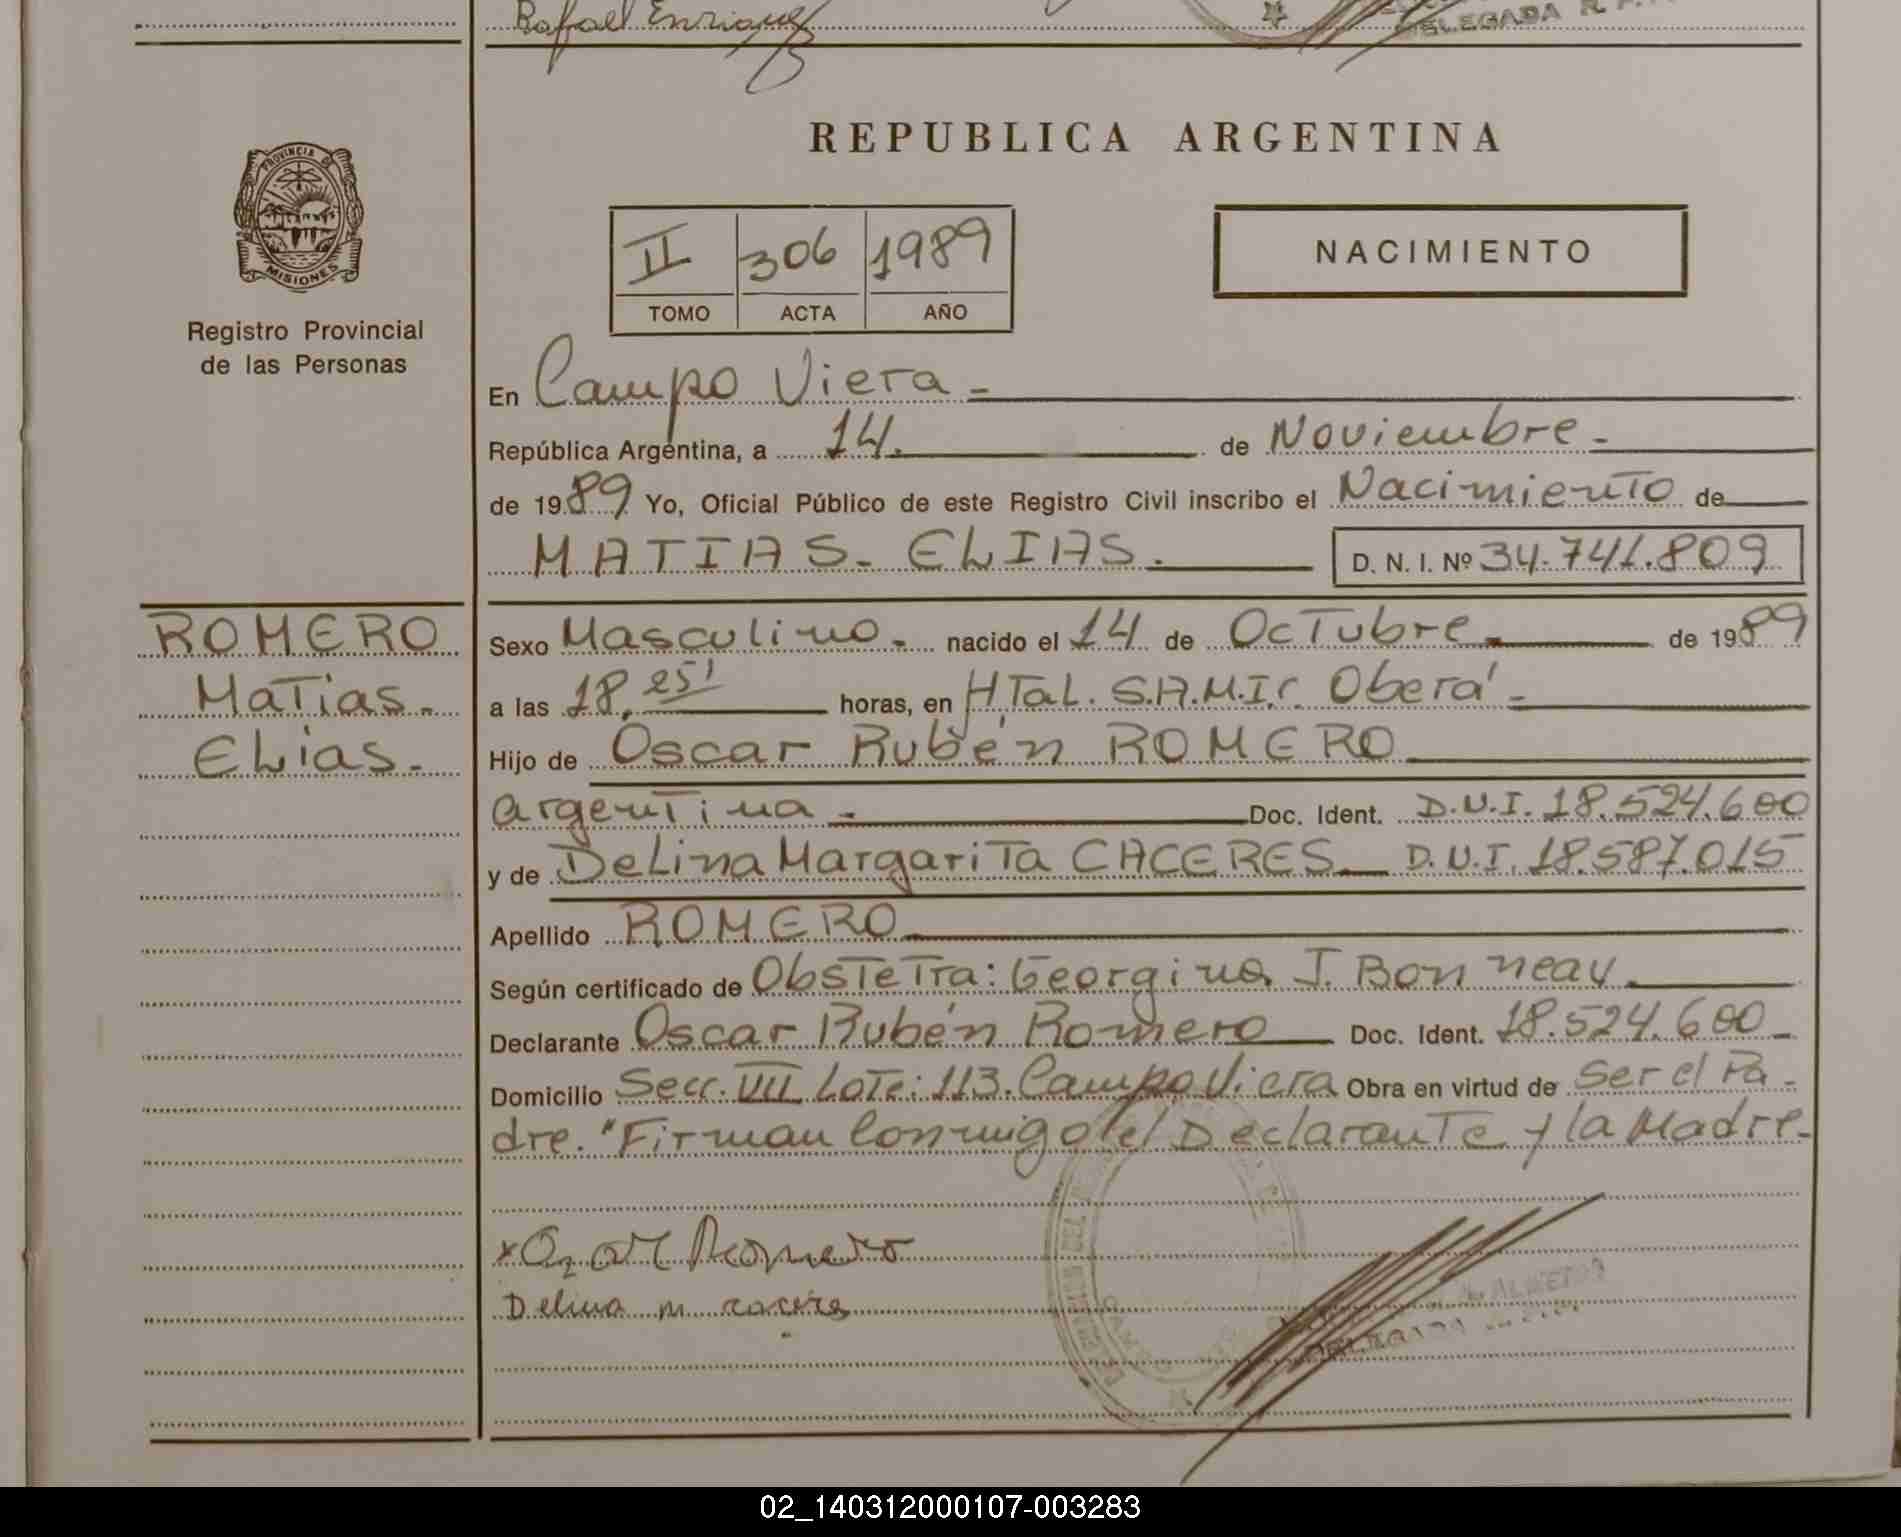 Rafael Enrique
DELEGADA R. P.
REPUBLICA ARGENTINA
PROVINCIA DE
MISIONES
Registro Provincial
de las Personas
II 306 1989
TOMO ACTA AÑO
NACIMIENTO
En Campo Viera -
República Argentina, a 14. de Noviembre -
de 1989 Yo, Oficial Público de este Registro Civil inscribo el Nacimiento de
MATIAS - ELIAS. D. N. I. Nº 34.741.809
ROMERO
Matias -
Elias -
Sexo Masculino - nacido el 14 de Octubre - de 1989
a las 18,25' horas, en HTal. S.A.M.I.C. Oberá -
Hijo de Oscar Rubén ROMERO
argentina - Doc. Ident. D.N.I. 18.524.600
y de Delina Margarita CACERES D.N.I. 18.587.015
Apellido ROMERO
Según certificado de Obstetra: Georgina J. Bonneau
Declarante Oscar Rubén Romero Doc. Ident. 18.524.600 -
Domicilio Secc. VII Lote: 113. Campo Viera Obra en virtud de Ser el Pa-
dre. "Firman Conmigo el Declarante y la Madre -
x Oscar Romero
Delina M caceres
DELEGADA
02_140312000107-003283